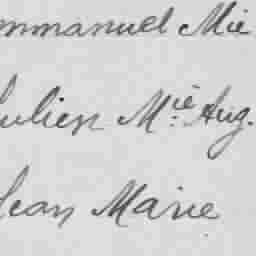 mmanuel Mie
Julien M.ie Aug.
Jean Marie